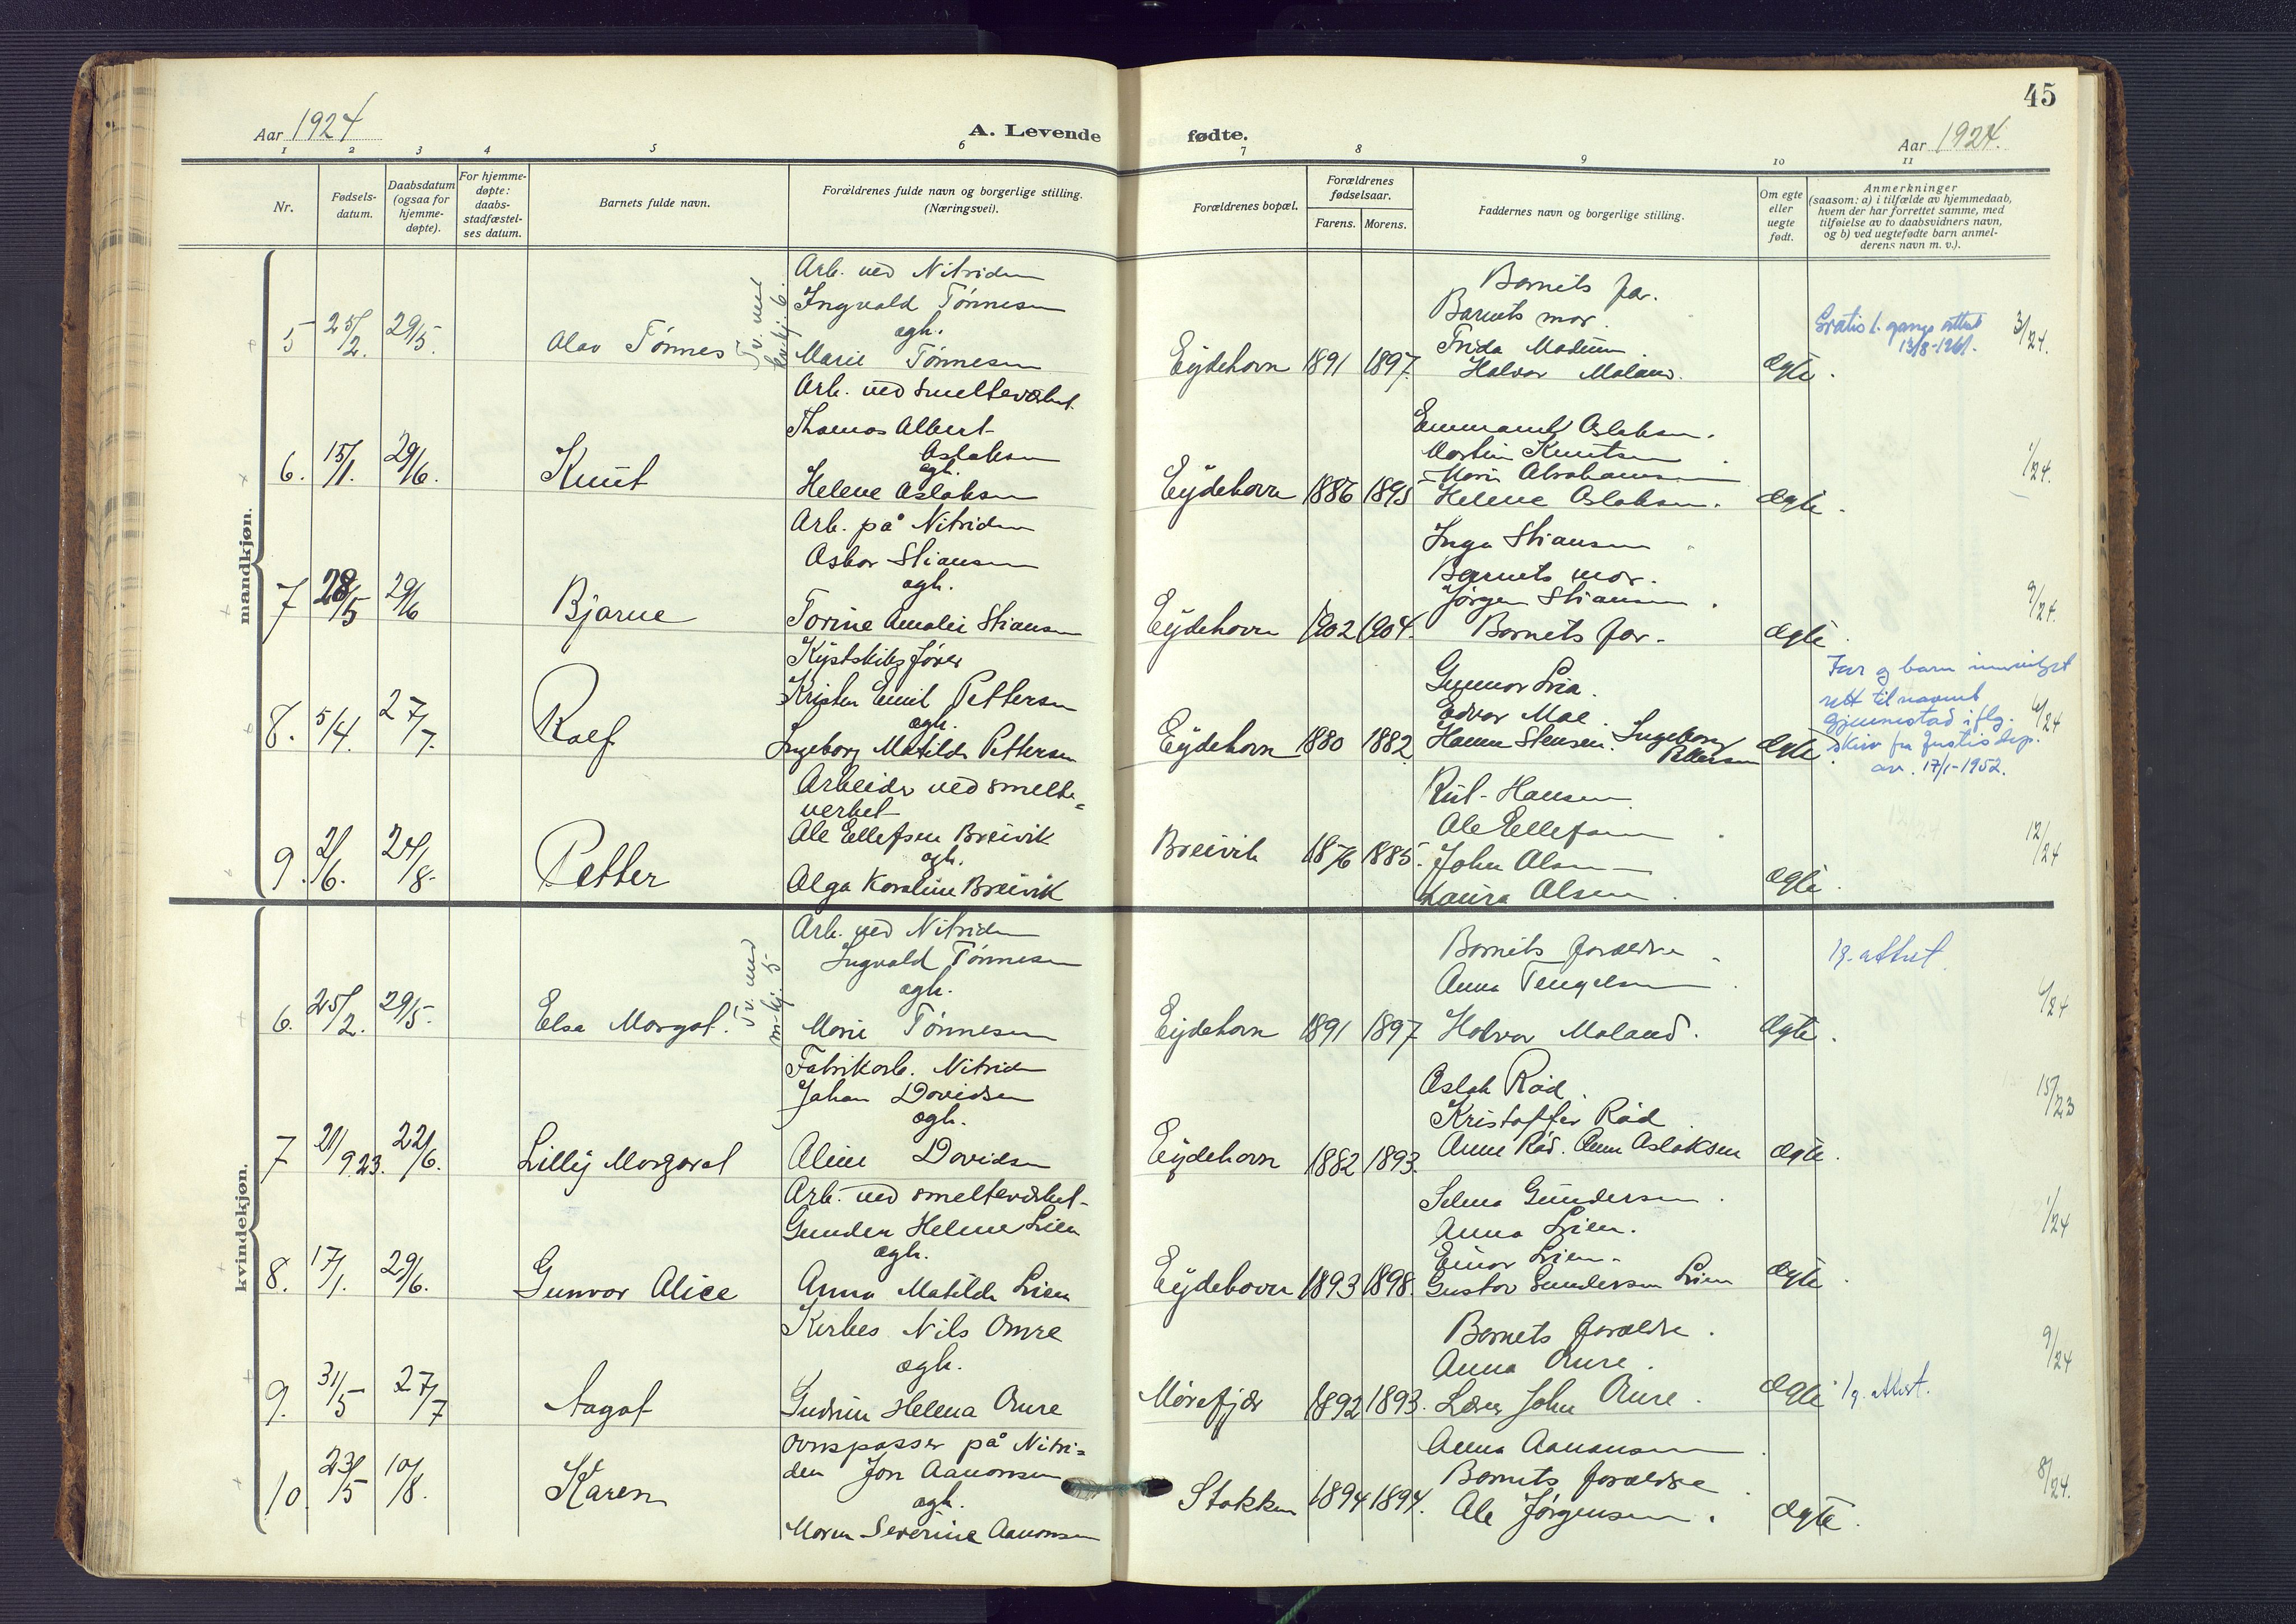 45
Aar 1924
A. Levende
fødte.
Aar 1924.
1 2 3 4 5 6 7 8 9 10 11
Nr.
Fødsels-
datum.
Daabsdatum
(ogsaa for
hjemme-
døpte).
For hjemme-
døpte:
daabs-
stadfæstel-
ses datum.
Barnets fulde navn.
Forældrenes fulde navn og borgerlige stilling.
(Næringsvei).
Forældrenes bopæl.
Forældrenes
fødselsaar.
Farens. Morens.
Faddernes navn og borgerlige stilling.
Om egte
eller
uegte
født.
Anmerkninger
(saasom: a) i tilfælde av hjemmedaab,
hvem der har forrettet samme, med
tilføielse av to daabsvidners navn,
og b) ved uegtefødte barn anmel-
derens navn m. v.).
mandkjøn.
5 25/2. 29/5. Alav Tønnes
Tv. med
kvkj. 6.
Arb. ved Nitriden
Ingvald Tønnesen
ogh.
Marie Tønnesen
Eydehavn 1891 1897.
Barnets far.
Barnets mor.
Frida
Halvor Maland.
ægte.
Gratis 1. gangs attest
13/8-1261.
3/24.
6. 15/1. 29/6. Knut
Arb. ved smelteverket.
Thomas Albert
Aslaksen
ogh.
Helene Aslaksen
Eydehavn 1886 1895
Emmanuel Aslaksen.
Martin Knutsen
Marie Abrahamsen
Helene Aslaksen.
ægte.
1/24.
7 28/5 29/6 Bjarne
Arb. på Nitriden
Oskar Stiansen
ogh.
Torine Amalie Stiansen
Eydehavn 1902 1904.
Inga Stiansen
Barnets mor.
Jørgen Stiansen.
Barnets far.
ægte.
9/24.
8. 5/4. 27/7. Rolf
Kystskibsfører
Kristen Emil Pettersen
ogh.
Ingeborg Matilde Pettersen
Eydehavn 1880 1882
Gunnor Lia.
Edvar Moe.
Hanna Stensen. Ingeborg
Pettersen
ægte.
Far og barn innvilget
rett til navnet
Gjennestad iflg.
skriv fra Justisdep.
av. 17/1-1952.
4/24
9. 2/6. 24/8. Petter
Arbeider ved smelte-
verket
Ole Ellefsen Breivik
ogh.
Olga Karoline Breivik
Breivik 1876 1885.
Rut Hansen
Ole Ellefsen
John Olsen
Laura Olsen.
ægte.
12/24
kvindekjøn.
6. 25/2. 29/5. Elsa Margot.
Tv. med
m-kj. 5
Arb. ved Nitriden
Ingvald Tønnesen
ogh.
Marie Tønnesen
Eydehavn 1891 1897
Barnets forældre
Anna Tengelsen
Halvor Maland.
ægte.
1 g. attest.
4/24
7 21/9 23. 22/6. Lilly Margaret
Fabrikarb. Nitriden
Johan Davidsen
ogh.
Aline Davidsen
Eydehavn 1882 1893.
Aslak Råd.
Kristoffer Råd
Anne Råd. Anna Aslaksen
ægte.
15/23
8. 17/1. 29/6. Gunvor Alice
Arb. ved smelteverket
Gunder Helme Lien
ogh.
Anna Matilde Lien
Eydehavn 1893 1898.
Selma Gundersen.
Anna Lien.
Einar Lien.
Gustav Gundersen Lien
ægte.
1/24
9. 31/5 27/7 Aagot
Kirkes. Nils Omre
ogh.
Gudrun Helena Omre
Mørefjær 1892 1893.
Barnets forældre.
Anna Omre.
Lærer John Omre.
ægte
1 g. attest.
9/24
10. 23/5 10/8. Karen
Ovnspasser på Nitri-
den Jon Aanonsen
ogh.
Maren Severine Aanonsen
Stokken 1894 1894.
Anna Aanonsen
Barnets forældre
Ole Jørgensen.
ægte.
8/24.